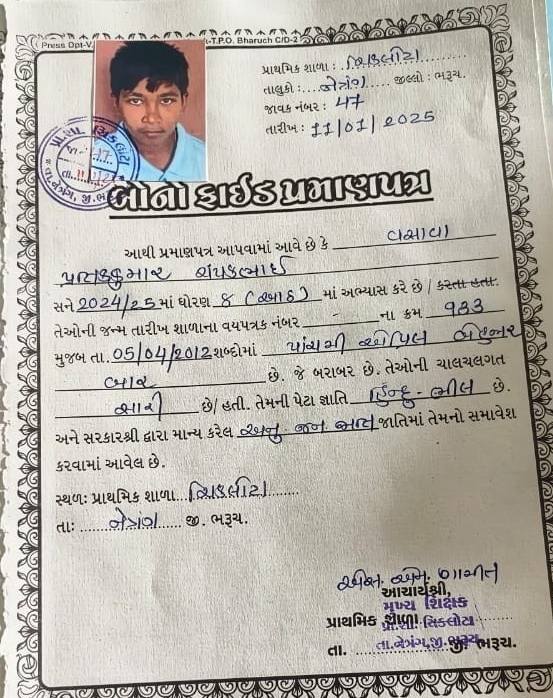 Press Dpt-V
-T.P.O. Bharuch C/D-2
પ્રાથમિક શાળા : ચિકલોટા
તાલુકો : નેત્રંગ જીલ્લો : ભરૂચ.
જાવક નંબર : 47
તારીખ : 11/01/2025
બોનો ફાઈડ પ્રમાણપત્ર
આથી પ્રમાણપત્ર આપવામાં આવે છે કે વસાવા
સને 2024/25 માં ધોરણ 8 (આઠ) માં અભ્યાસ કરે છે / કરતા હતા.
તેઓની જન્મ તારીખ શાળાના વયપત્રક નંબર - ના ક્રમ 933
મુજબ તા. 05/04/2012 શબ્દોમાં પાંચમી એપ્રિલ બે હજાર
બાર છે. જે બરાબર છે. તેઓની ચાલચલગત
સારી છે/હતી. તેમની પેટા જ્ઞાતિ હિન્દુ - ભીલ છે.
અને સરકારશ્રી દ્વારા માન્ય કરેલ અનુ. જન જાતિ જાતિમાં તેમનો સમાવેશ
કરવામાં આવેલ છે.
સ્થળ: પ્રાથમિક શાળા ચિકલોટા
તા: નેત્રંગ જી. ભરૂચ.
એસ. એમ. ગામીત
આચાર્યશ્રી,
મુખ્ય શિક્ષક
પ્રાથમિક શાળા
પ્રા.શા. ચિકલોટા
તા. જી. ભરૂચ.
તા.નેત્રંગ,જી.ભરૂચ